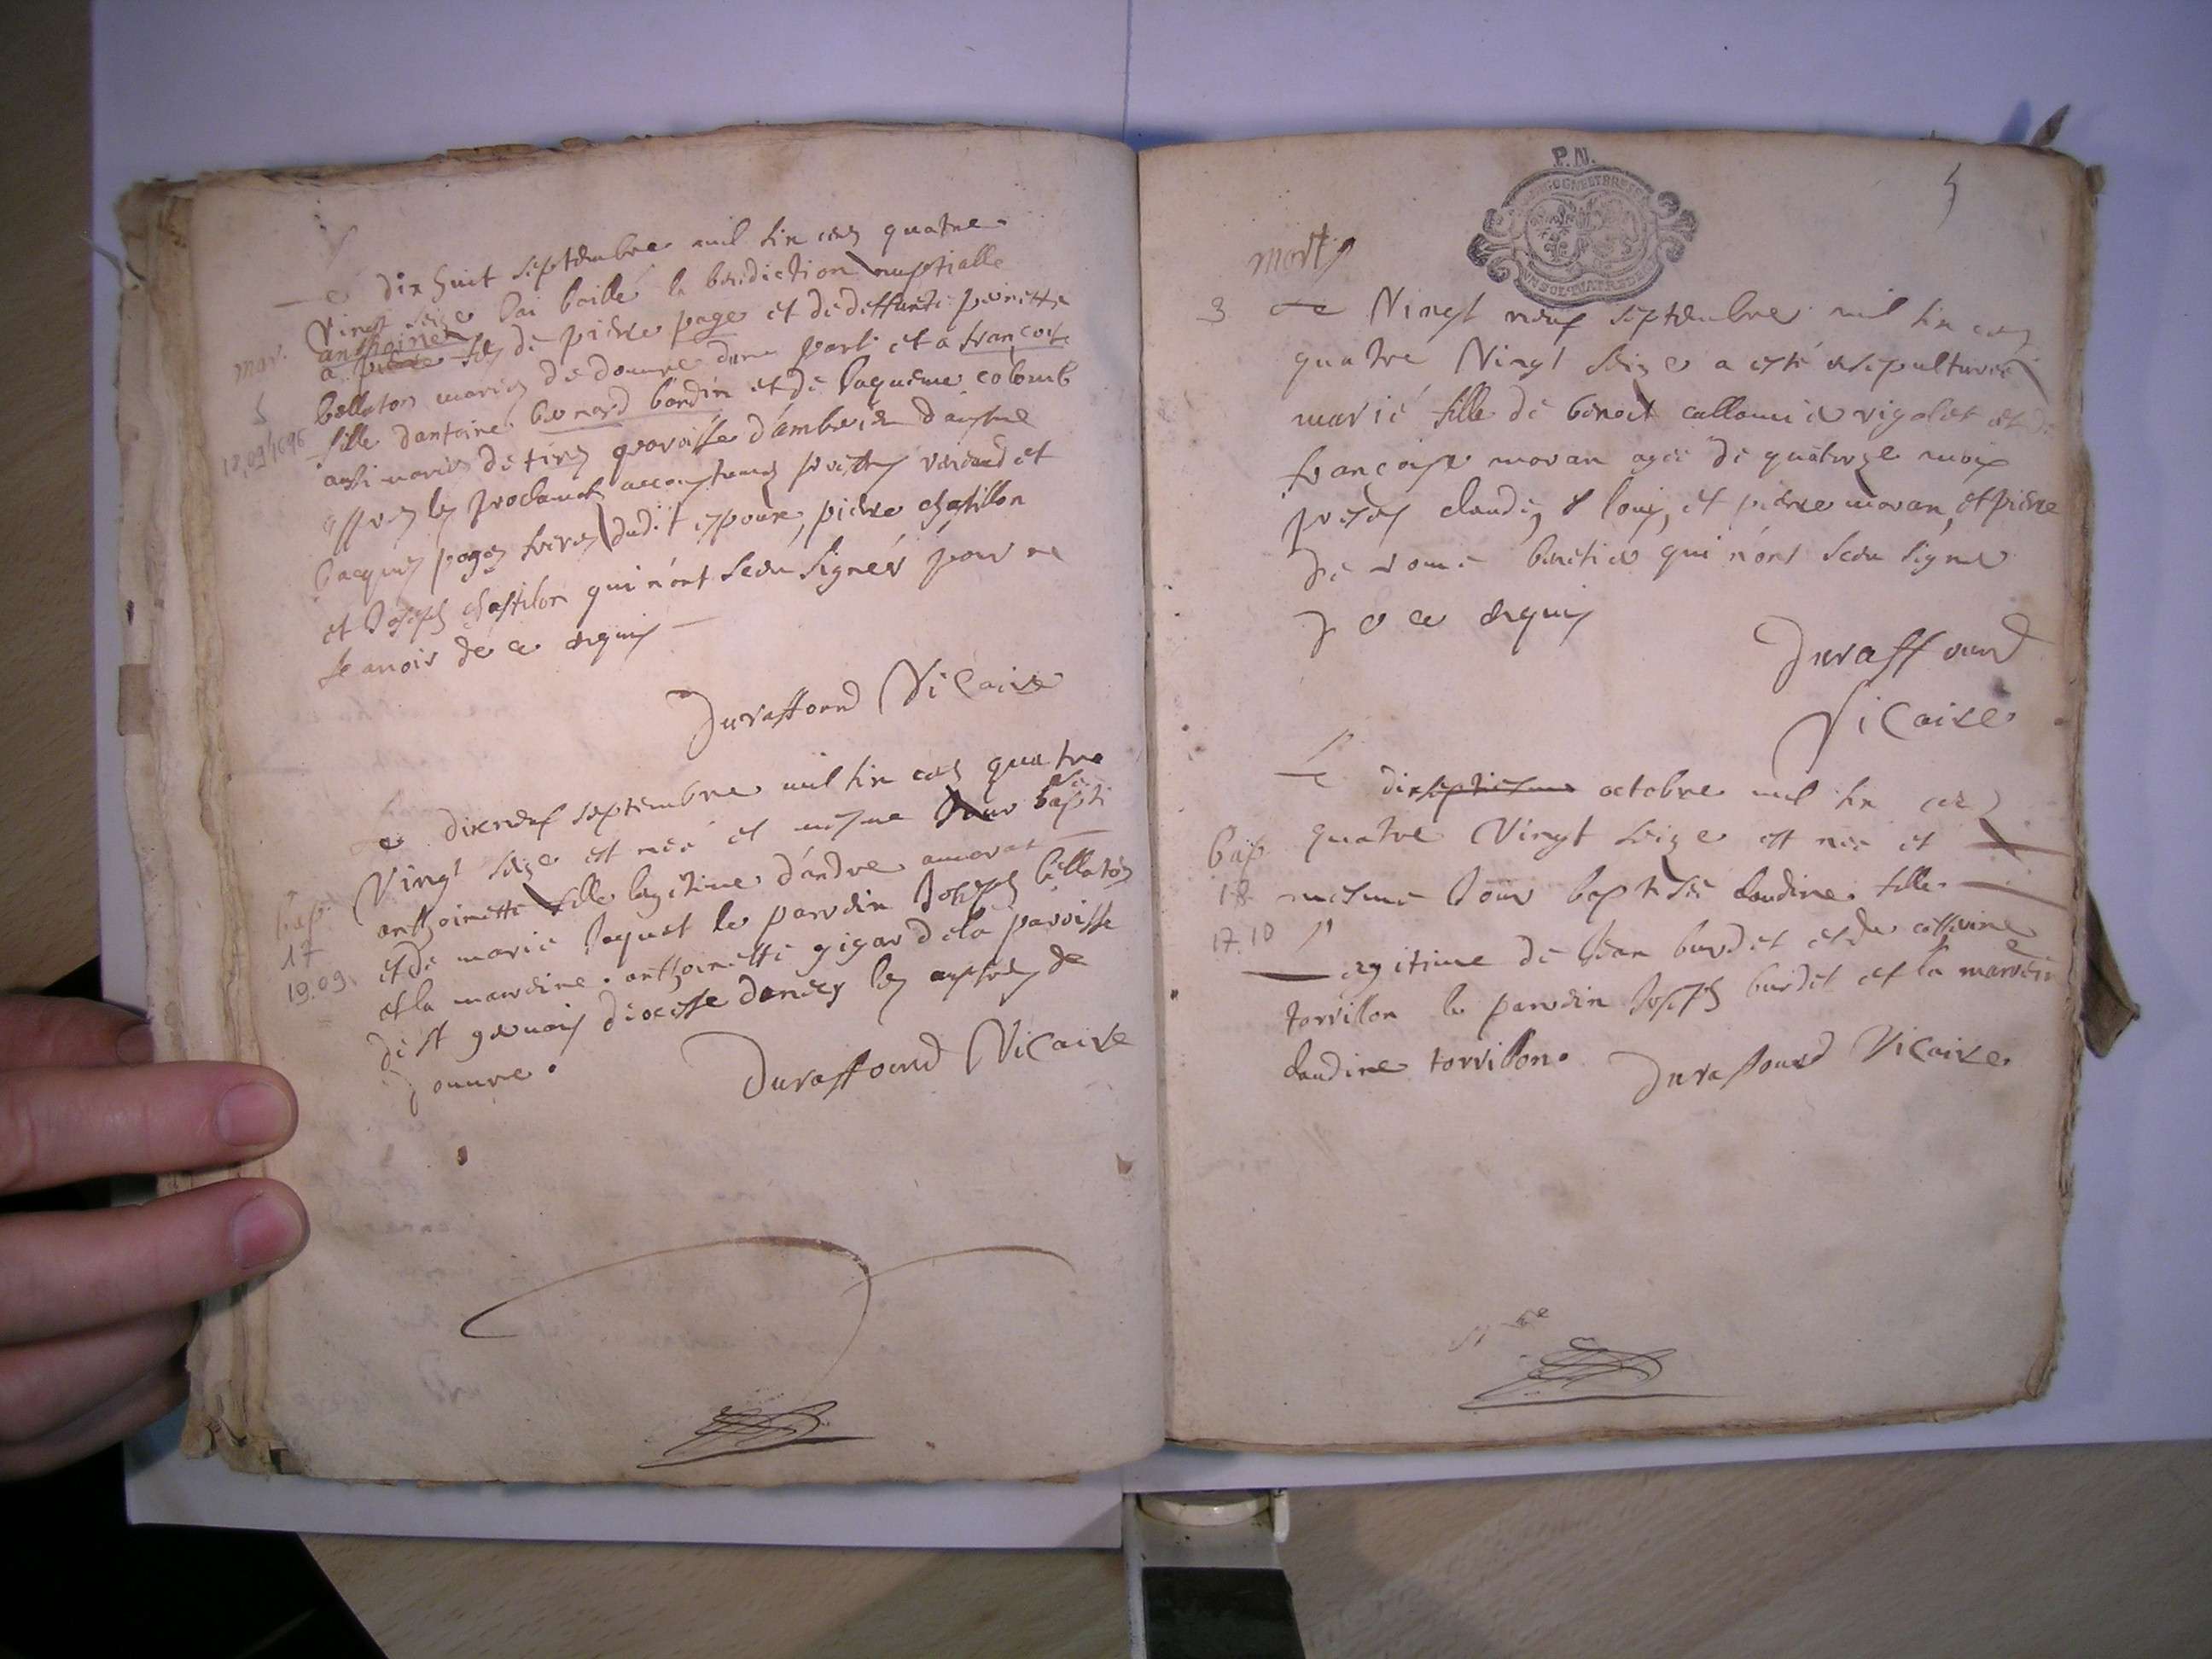 Le dix huit septembre mil six cens quatre
vingt seize Jai baillé la benediction nuptialle
anthoine
a pierre fils de pierre page et de deffunte perrette
bellaton mariés de douure dune part et a francoise
fille dantoine bernard bondin et de JaquemE colomb
aussi mariés de paroisse d'ambrieu
appres les proclamats accoustumés presens et
Jacques pages freres dudit espoux, pierre chastillon
et Joseph chastilon qui n'ont sceu signer pour ne
scavoir de ce requis
Duraffourd Vicaire
mar.
5
18.09 1696
Le dixneuf septembre mil six cens quatre
vingt seize est née et mesme Jour bapti
sée
anthoinette fille legitime d'andre
et de marie Jaquet le parrein Joseph bellaton
et la mareine anthoinette gigard de la paroisse
de st geruais diocesse
douure.
Duraffourd Vicaire
bap.
17
19.09.
P.N.
5
mort
3
Le Vingt neuf septembre mil six cens
quatre Vingt seize a esté ensepulturée
marie fille de benoit callamier rigolet et de
françoise moran agée de quatorze mois
presens claude, & louis, et pierre moran, et pierre
de rome qui n'ont sceu signer
de ce requis
Duraffourd
Vicaire
Le dixseptiesme octobre mil six cens
quatre Vingt seize est née et
mesme Jour baptisée claudine fille
legitime de Jean burdet et de
torrillon le parrein Joseph burdet et la marreine
claudine torrillon. Duraffourd Vicaire
bap.
18
17.10